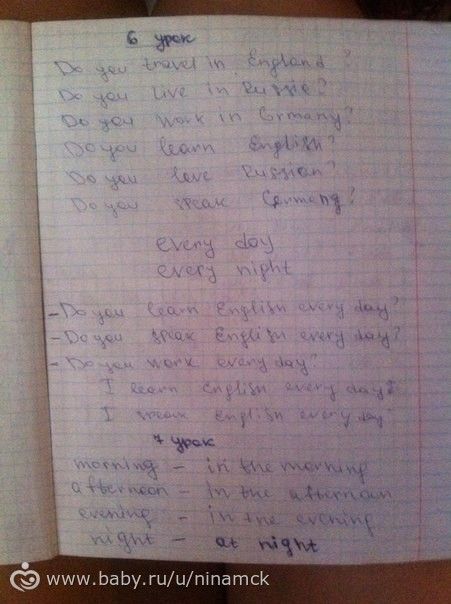 6 урок
Do you travel in England?
Do you live in Russia?
Do you work in Germany?
Do you learn English?
Do you love Russian?
Do you speak Germany?
every day
every night
- Do you learn English every day?
- Do you speak English every day?
- Do you work every day?
I learn English every day
I speak English every day
7 урок
morning - in the morning
afternoon - in the afternoon
evening - in the evening
night - at night
www.baby.ru/u/ninamck